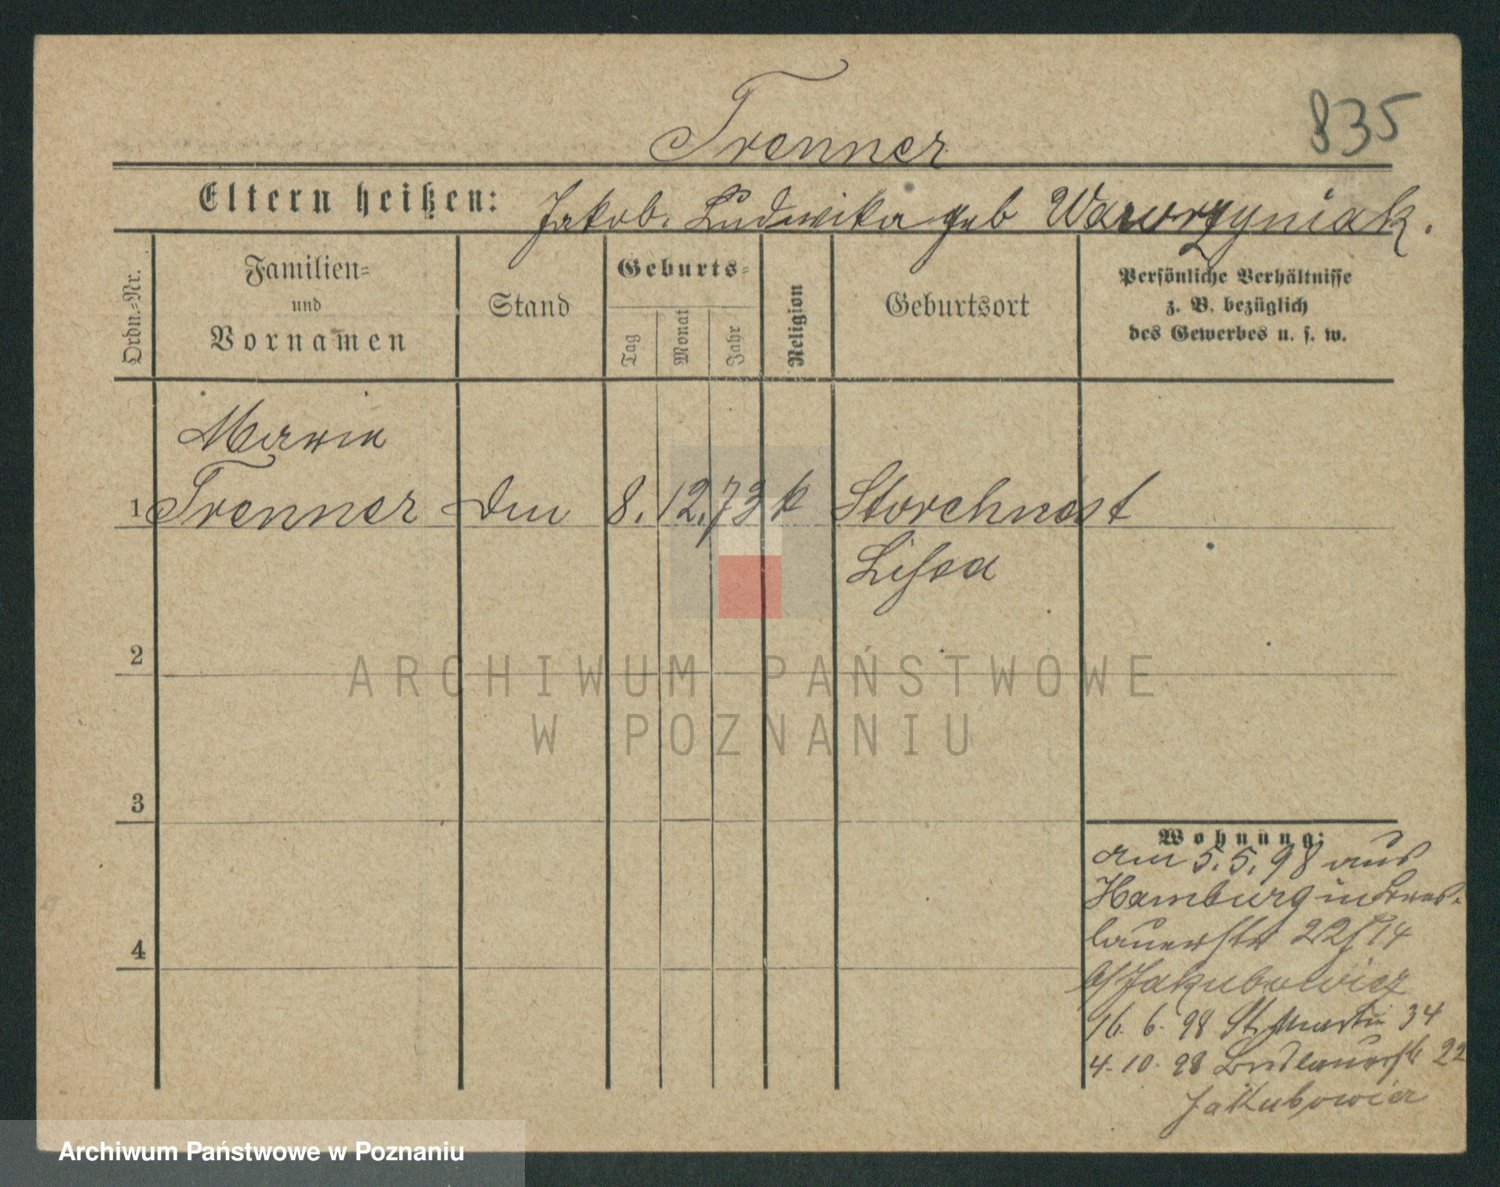 835
Trenner
Eltern heißen: Jakob. Ludwika geb Wawrzyniak.
Ordn.-Nr.
Familien-
und
Vornamen
Stand
Geburts-
Tag
Monat
Jahr
Religion
Geburtsort
Persönliche Verhältnisse
z. B. bezüglich
des Gewerbes u. s. w.
Maria
1 Trenner 8. 12. 73 k Storchnest
Lissa
2
ARCHIWUM PAŃSTWOWE
W POZNANIU
3
Wohnung:
am 5.5.98 aus
Hamburg in Bres-
lauerstr 22/14
b/ Jakubowicz
16. 6. 98 St. Martin 34
4. 10. 98 Breslauerstr 22
Jakubowicz
4
Archiwum Państwowe w Poznaniu